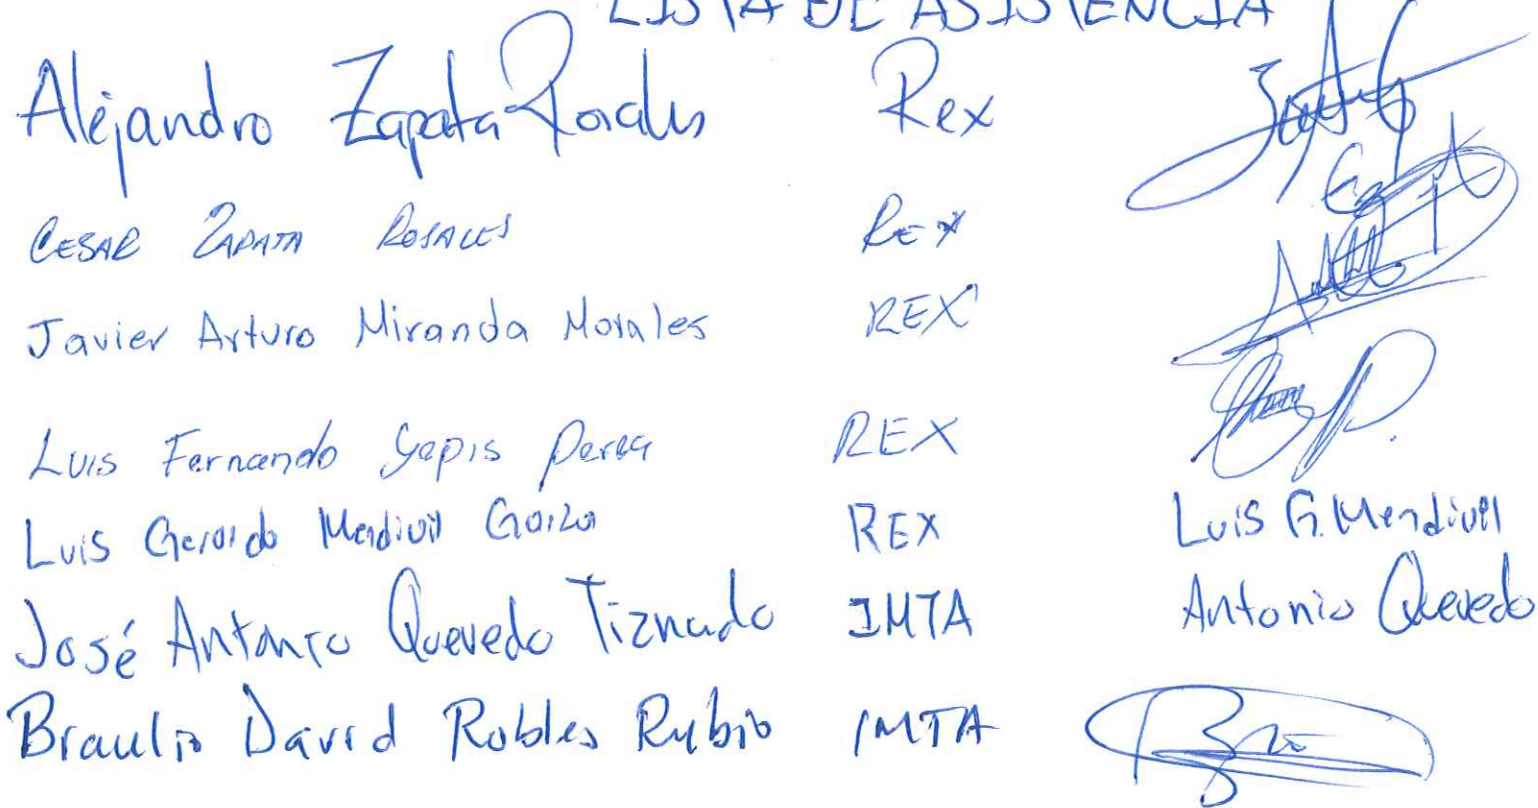 LISTA DE ASISTENCIA
Alejandro Zapata Rosales Rex
CESAR ZAPATA ROSALES REX
Javier Arturo Miranda Morales REX
Luis Fernando Yepis Perea REX
Luis Gerardo Mendivil Garza REX Luis G. Mendivil
José Antonio Quevedo Tiznado IMTA Antonio Quevedo
Braulio David Robles Rubio IMTA